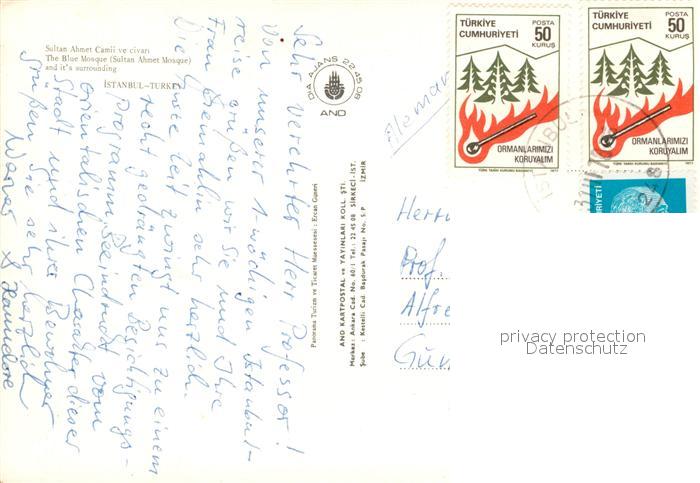 Sultan Ahmet Camii ve civarı
The Blue Mosque (Sultan Ahmet Mosque)
and it's surrounding
İSTANBUL-TURKEY
DİA AJANS 22 45 08
AND
Sehr verehrter Herr Professor!
Von unserer 1 wöchigen Istanbul-
reise grüßen wir Sie und Ihre
Frau Gemahlin sehr herzlich.
Die kurze Zeit zwingt uns zu einem
recht gedrängten Besichtigungs-
programm. Beeindruckt vom
orientalischen Charakter dieser
Stadt und ihrer Bewohner
grüßen Sie sehr herzlich
Werner &
Panorama Turizm ve Ticaret Müessesesi : Ercan Güneri
AND KARTPOSTAL ve YAYINLARI KOLL. ŞTİ.
Merkez : Ankara Cad. No. 60/1 Tel.: 22 45 08 SİRKECİ-İST.
Şube : Kestelli Cad. Başdurak Pasajı No. 5.P İZMİR
Aleman
Herrn
Prof.
Alfre
TÜRKİYE
CUMHURİYETİ
POSTA
50
KURUŞ
ORMANLARIMIZI
KORUYALIM
1977
TÜRKİYE
CUMHURİYETİ
POSTA
50
KURUŞ
ORMANLARIMIZI
KORUYALIM
1977
privacy protection
Datenschutz